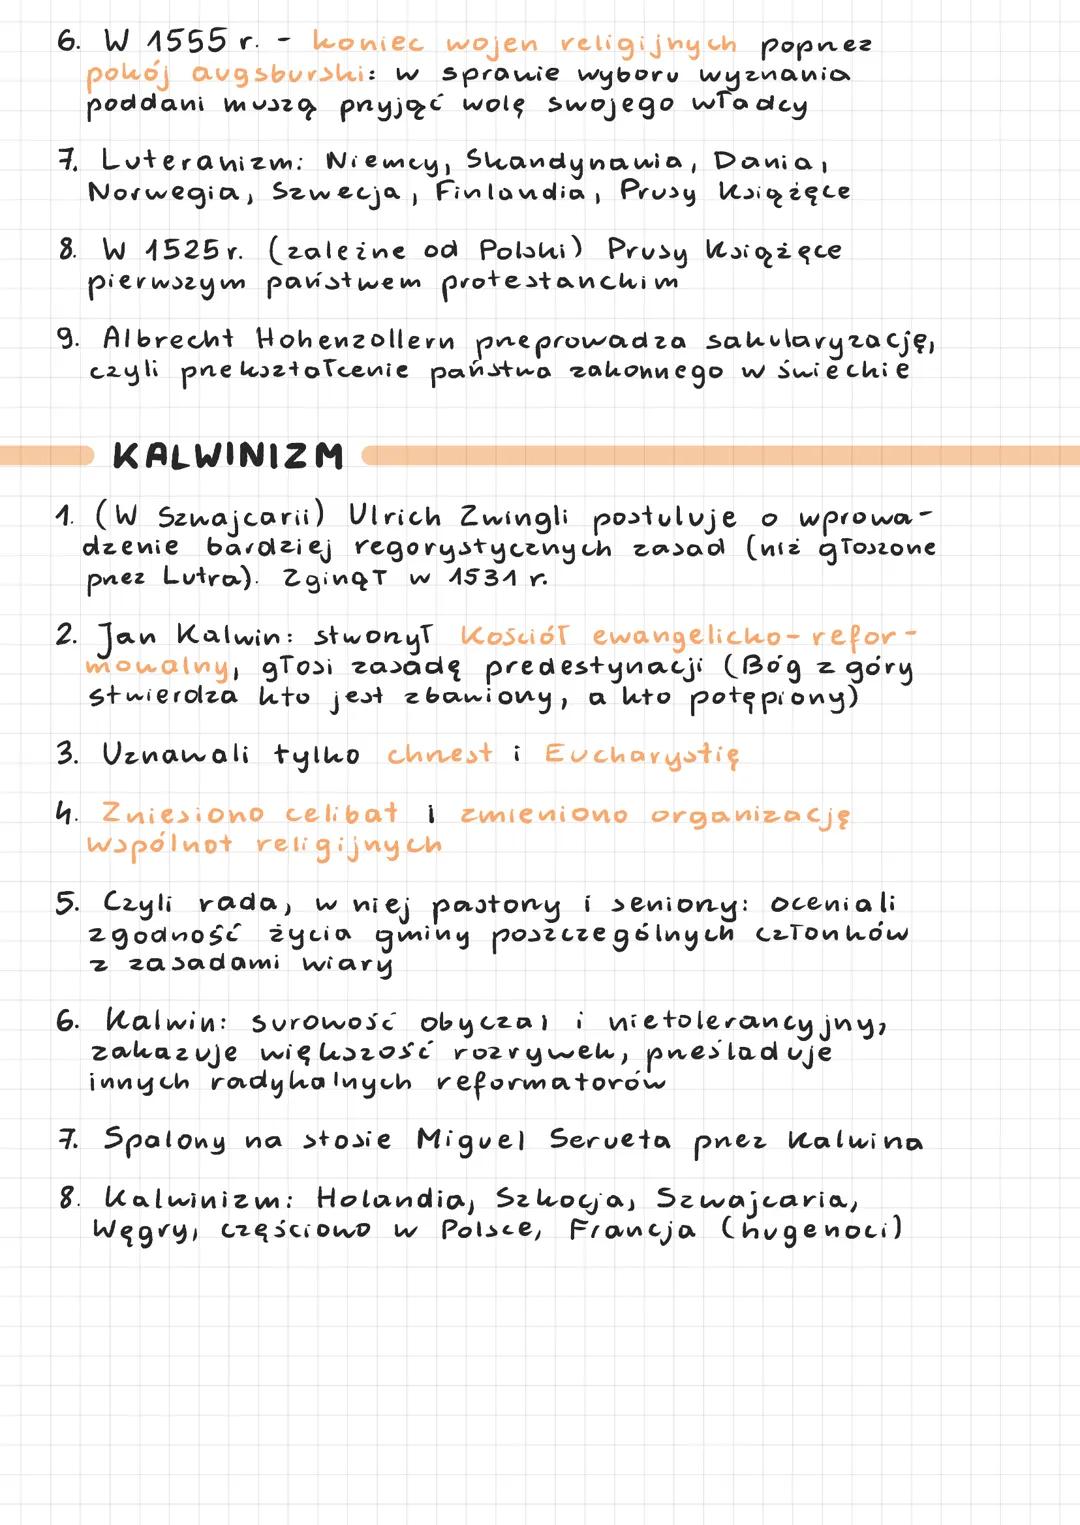 6. W 1555 r. - koniec wojen religijnych poprzez
pokój augsburski: w sprawie wyboru wyznania
poddani muszą przyjąć wolę swojego władcy
7. Luteranizm: Niemcy, Skandynawia, Dania,
Norwegia, Szwecja, Finlandia, Prusy Książęce
8. W 1525 r. (zależne od Polski) Prusy Książęce
pierwszym państwem protestanckim
9. Albrecht Hohenzollern przeprowadza sakularyzację,
czyli przekształcenie państwa zakonnego w świeckie
KALWINIZM
1. (W Szwajcarii) Ulrich Zwingli postuluje o wprowa-
dzenie bardziej regorystycznych zasad (niż głoszone
przez Lutra). Zginął w 1531 r.
2. Jan Kalwin: stworzył Kościół ewangelicko-refor-
mowalny, głosi zasadę predestynacji (Bóg z góry
stwierdza kto jest zbawiony, a kto potępiony)
3. Uznawali tylko chrzest i Eucharystię
4. Zniesiono celibat i zmieniono organizację
wspólnot religijnych
5. Czyli rada, w niej pastorzy i seniorzy: oceniali
zgodność życia gminy poszczególnych członków
z zasadami wiary
6. Kalwin: surowość obyczai i nietolerancyjny,
zakazuje większość rozrywek, prześladuje
innych radykalnych reformatorów
7. Spalony na stosie Miguel Serveta przez Kalwina
8. Kalwinizm: Holandia, Szkocja, Szwajcaria,
Węgry, częściowo w Polsce, Francja (hugenoci)